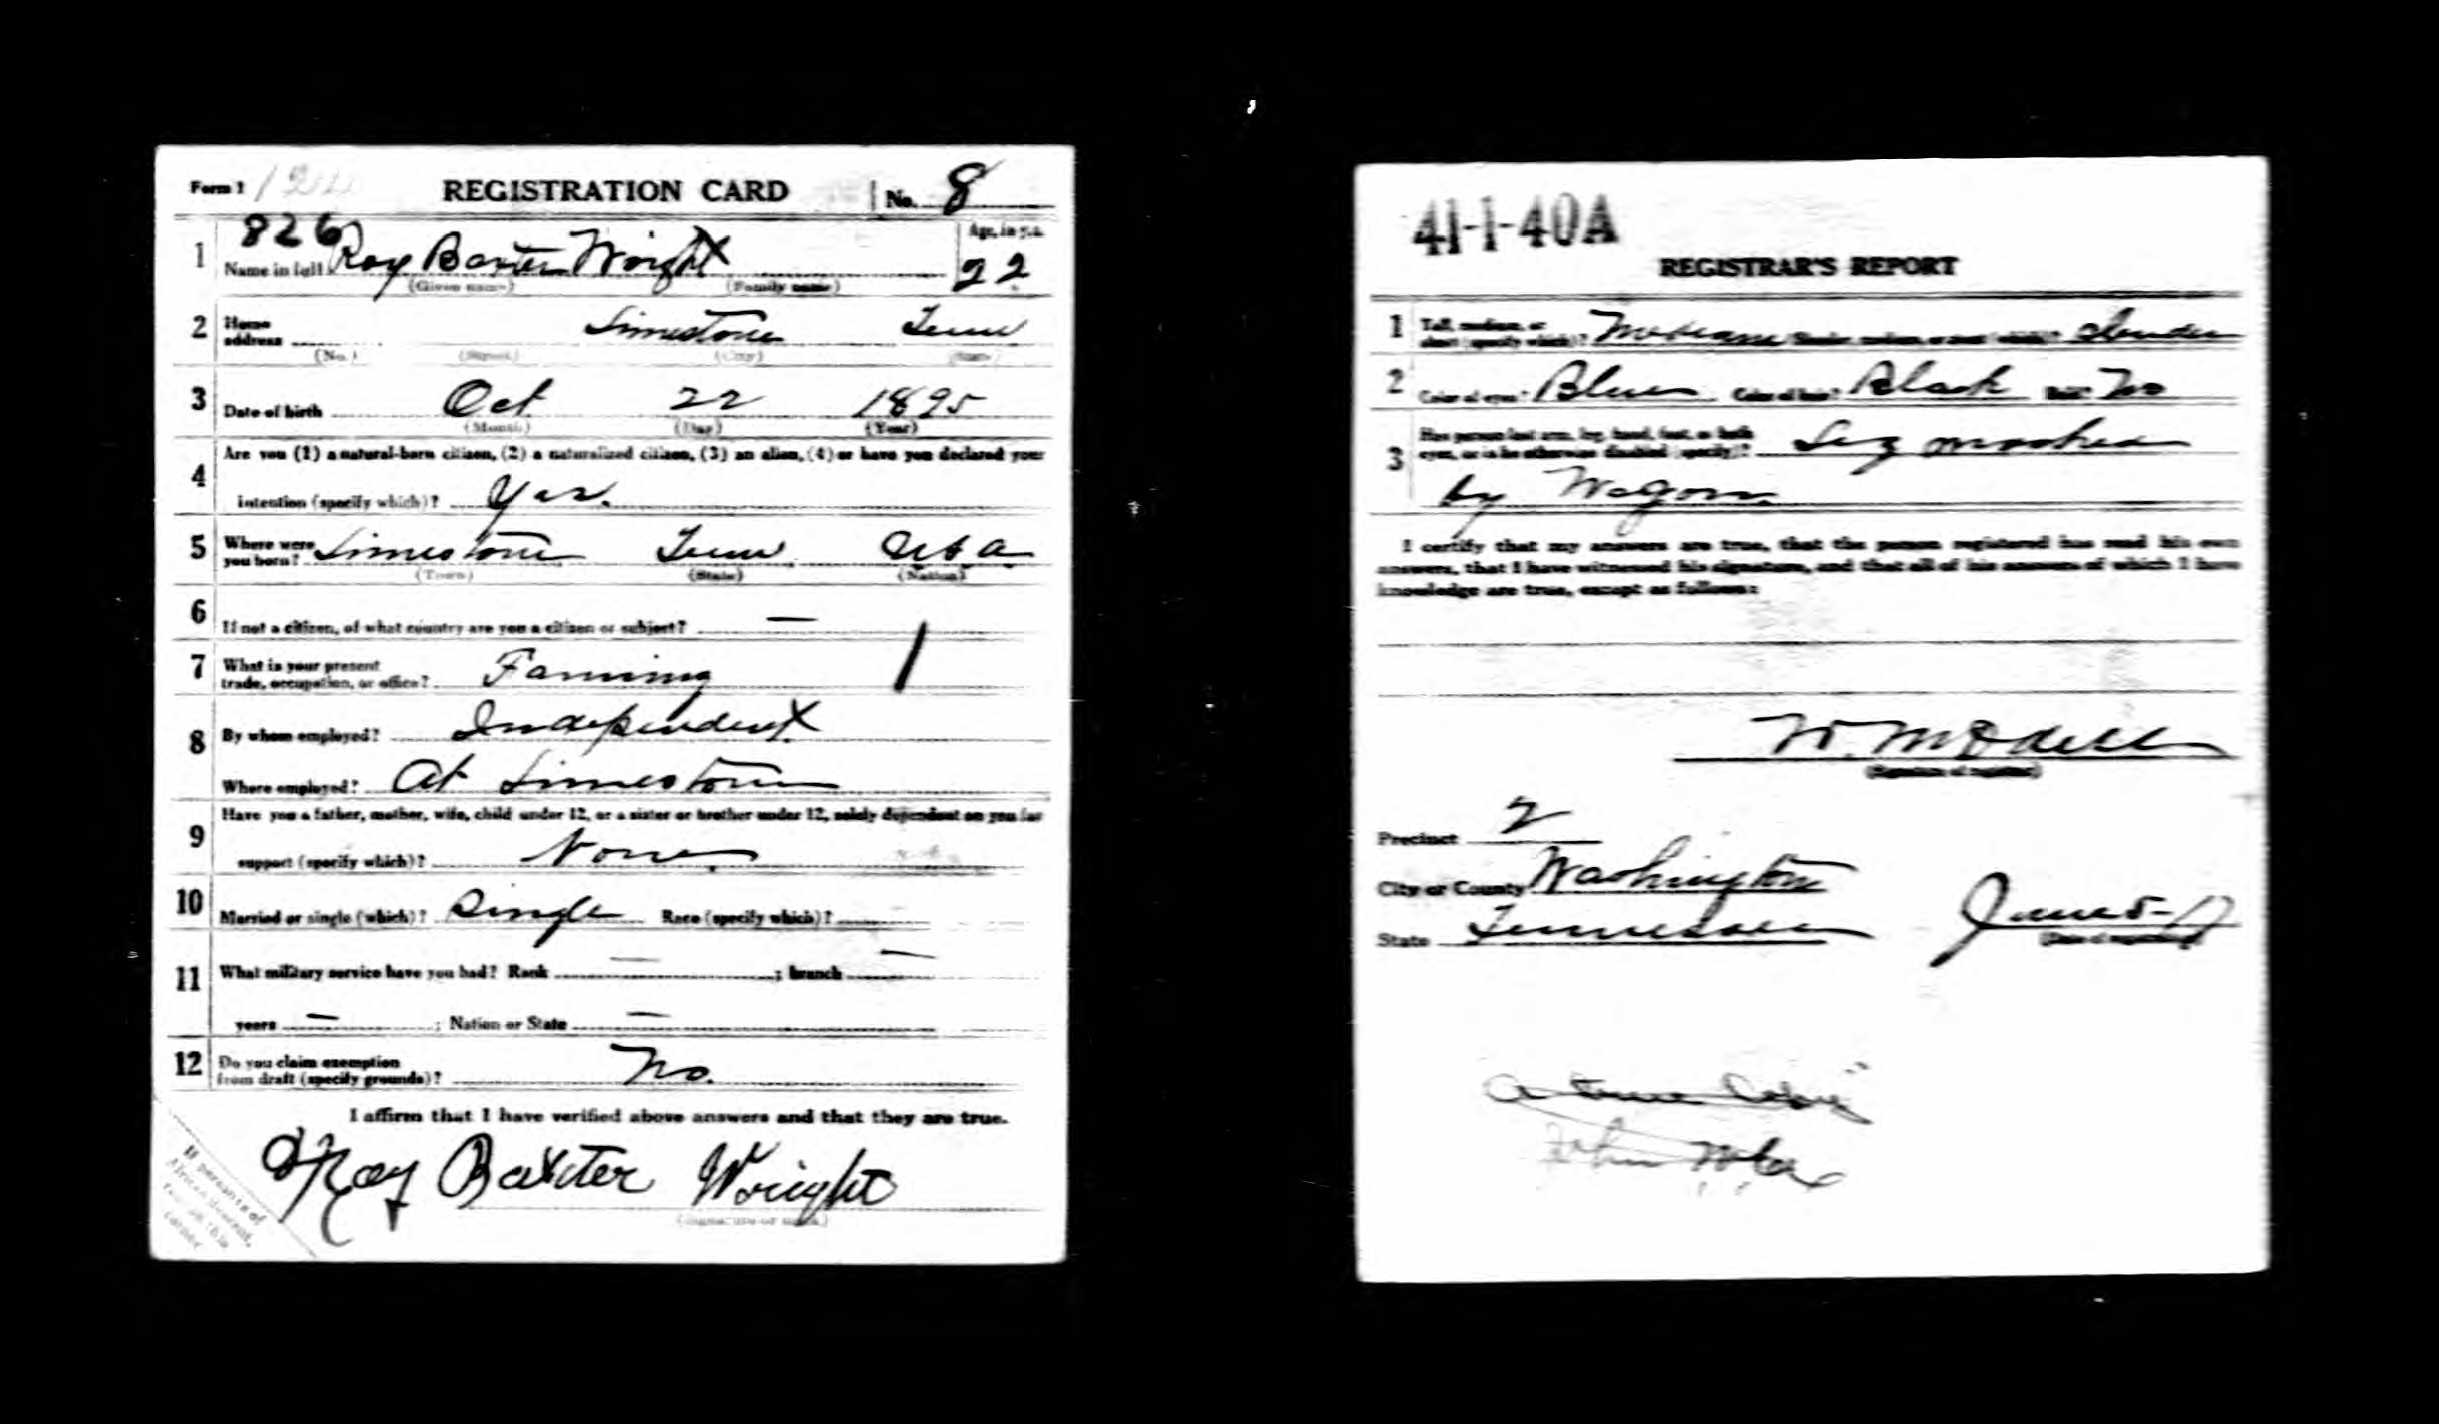 Form 1
REGISTRATION CARD
No. 8
826
1 Name in full Roy Baxter Wright
Age, in yrs. 22
(Given name) (Family name)
2 Home address Limestone Tenn
(No.) (Street) (City) (State)
3 Date of birth Oct 22 1895
(Month) (Day) (Year)
4 Are you (1) a natural-born citizen, (2) a naturalized citizen, (3) an alien, (4) or have you declared your
intention (specify which)? Yes.
5 Where were you born? Limestone Tenn U S A
(Town) (State) (Nation)
6 If not a citizen, of what country are you a citizen or subject? —
7 What is your present
trade, occupation, or office? Farming
8 By whom employed? Independent
Where employed? At Limestone
9 Have you a father, mother, wife, child under 12, or a sister or brother under 12, solely dependent on you for
support (specify which)? None
10 Married or single (which)? Single Race (specify which)?
11 What military service have you had? Rank — ; branch —
years — ; Nation or State —
12 Do you claim exemption
from draft (specify grounds)? No.
I affirm that I have verified above answers and that they are true.
Roy Baxter Wright
(Signature or mark)
If person is of
African descent,
corner
41-1-40A
REGISTRAR'S REPORT
1 Tall, medium, or
short (specify which)? Medium Slender, medium, or stout (which)? Slender
2 Color of eyes? Blue Color of hair? Black Bald? No
3 Has person lost arm, leg, hand, foot, or both
eyes, or is he otherwise disabled (specify)? Leg mashed
by Wagon
I certify that my answers are true, that the person registered has read his own
answers, that I have witnessed his signature, and that all of his answers of which I have
knowledge are true, except as follows:
(Signature of registrar)
Precinct 2
City or County Washington
State Tennessee
June 5-17
(Date of registration)
John